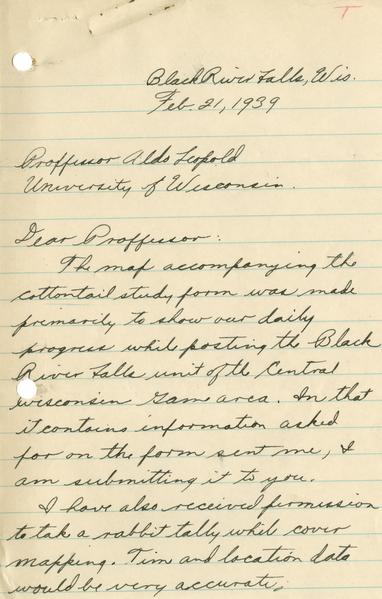 T
Black River Falls, Wis.
Feb. 21, 1939
Proffessor Aldo Leopold
University of Wisconsin.
Dear Proffessor:
The map accompanying the
cottontail study form was made
primarily to show our daily
progress while posting the Black
River Falls unit of the Central
Wisconsin Game area. In that
it contains information asked
for on the form sent me, I
am submitting it to you.
I have also received permission
to tak a rabbit tally whil cover
mapping. Tim and location data
would be very accurate,